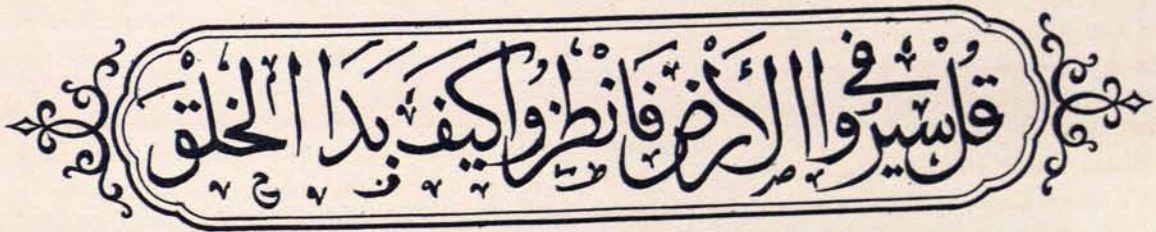 قُلْ سِيرُوا فِي الْأَرْضِ فَانْظُرُوا كَيْفَ بَدَأَ الْخَلْقَ